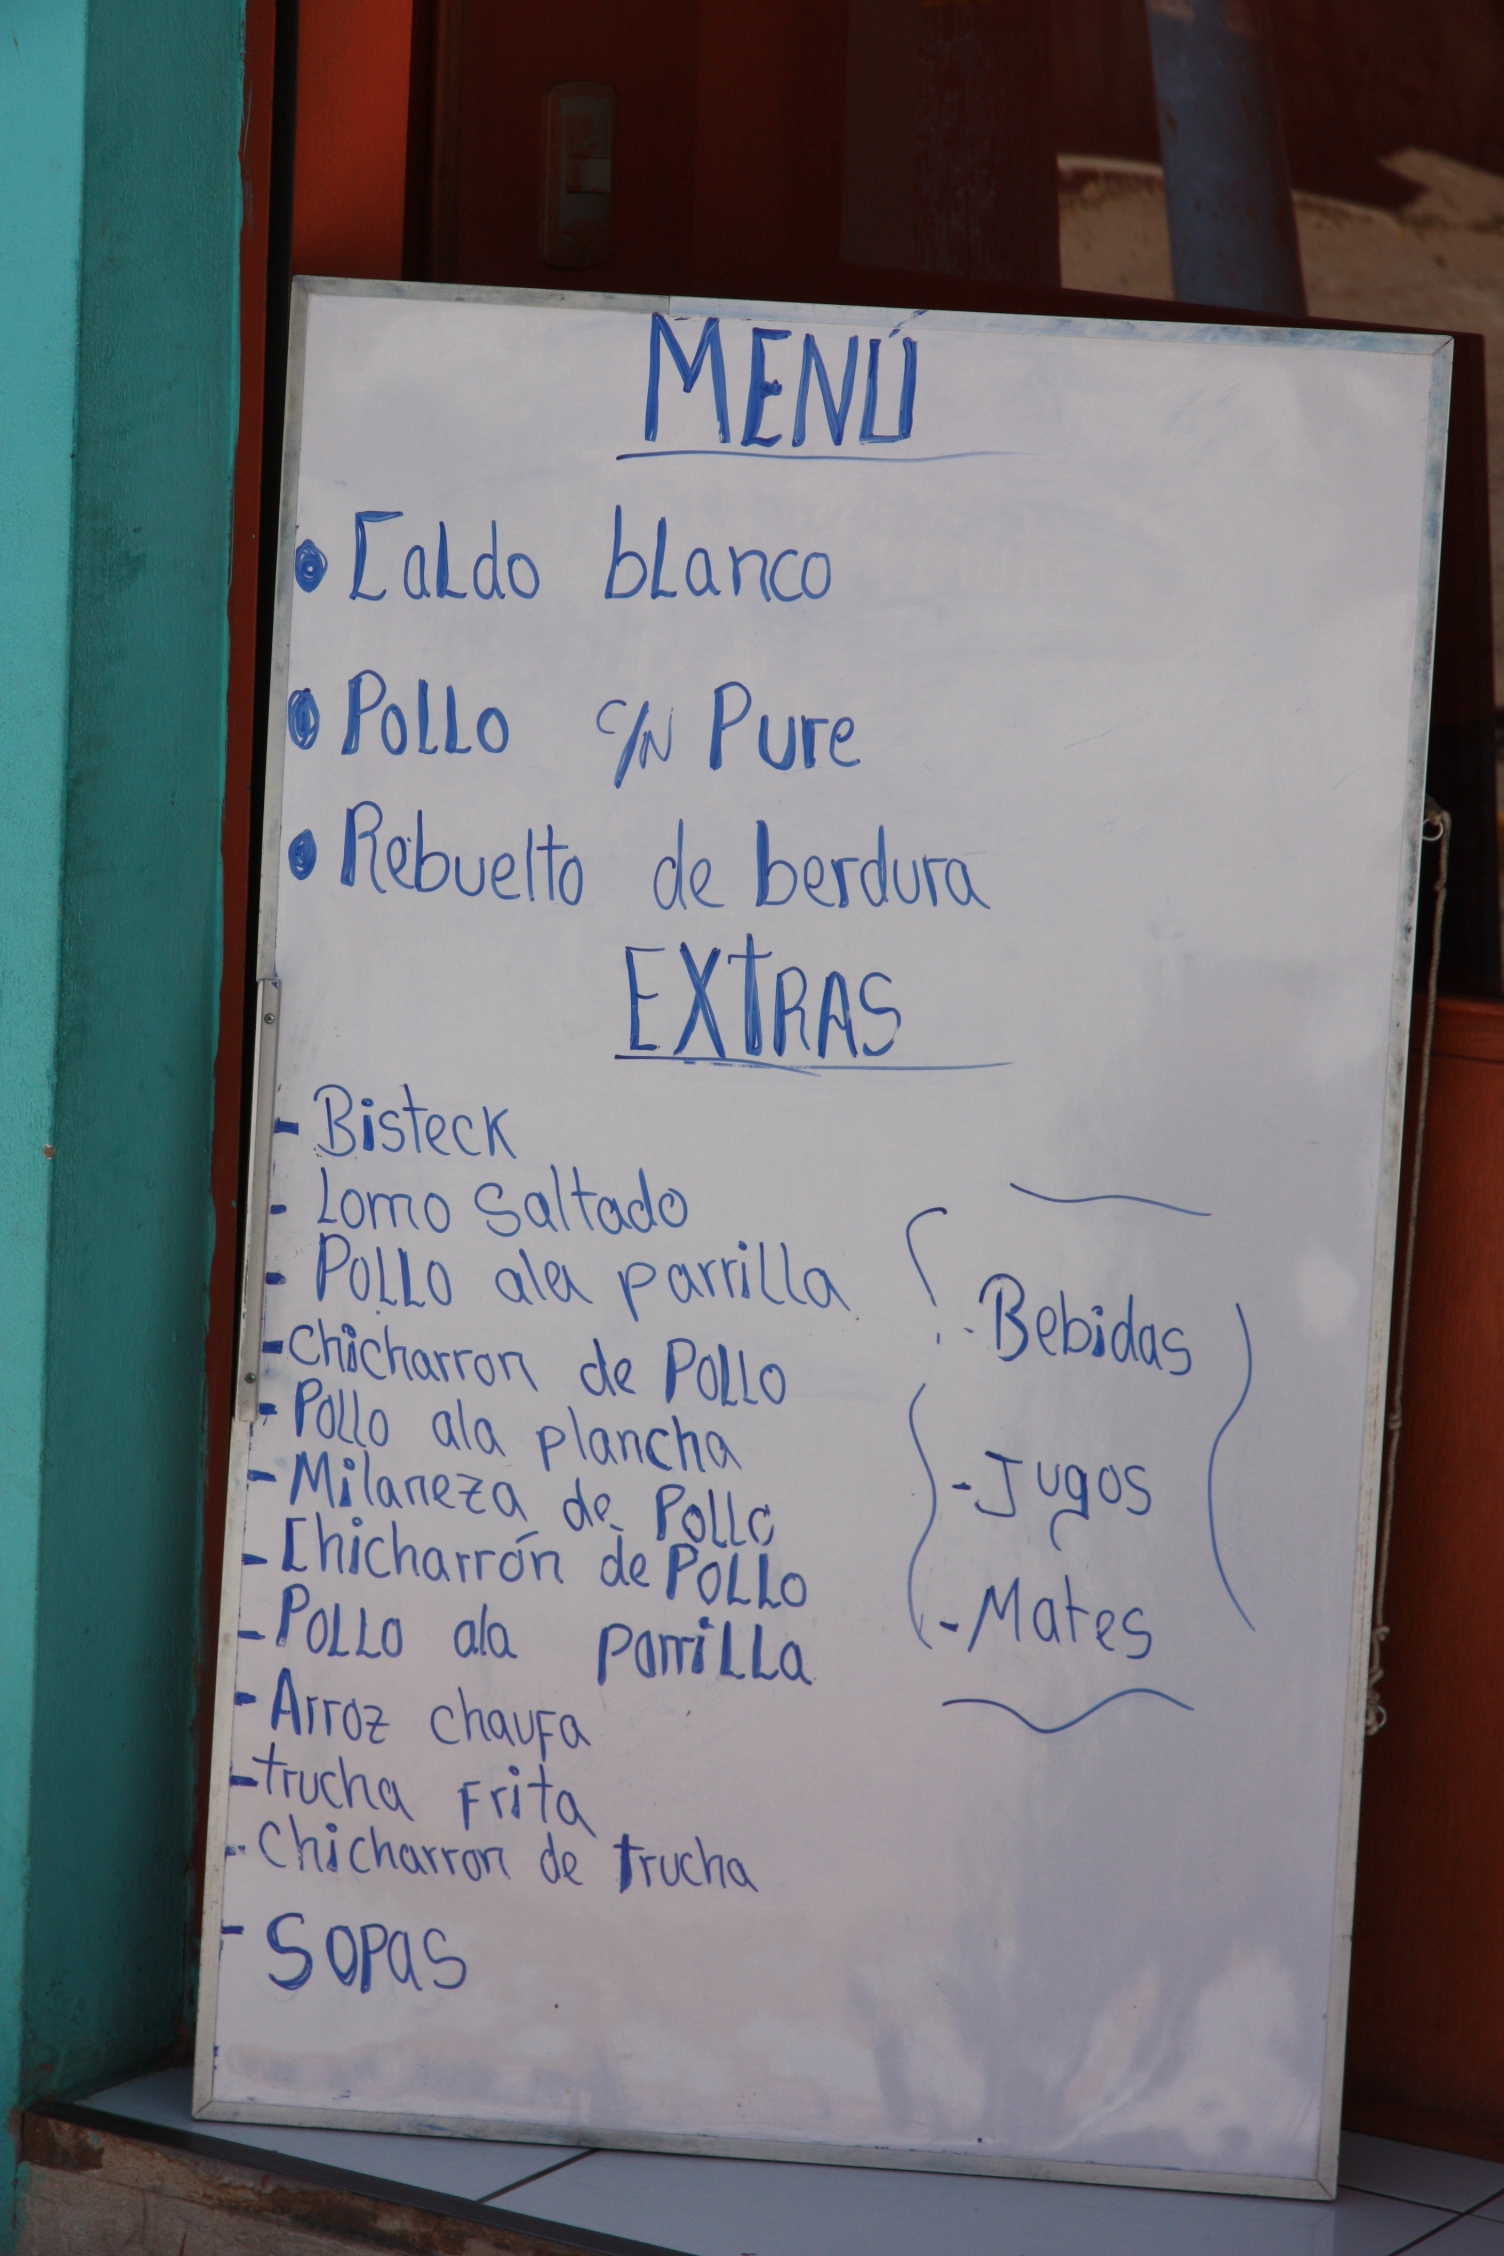 MENÚ
• Caldo blanco
• Pollo c/n Pure
• Rebuelto de berdura
EXtRAS
- Bisteck
- Lomo Saltado
- Pollo ala parrilla
- Chicharron de Pollo
- Pollo ala plancha
- Milaneza de Pollo
- Chicharrón de Pollo
- Pollo ala parrilla
- Arroz chaufa
- trucha Frita
- Chicharron de trucha
- Sopas
- Bebidas
- Jugos
- Mates